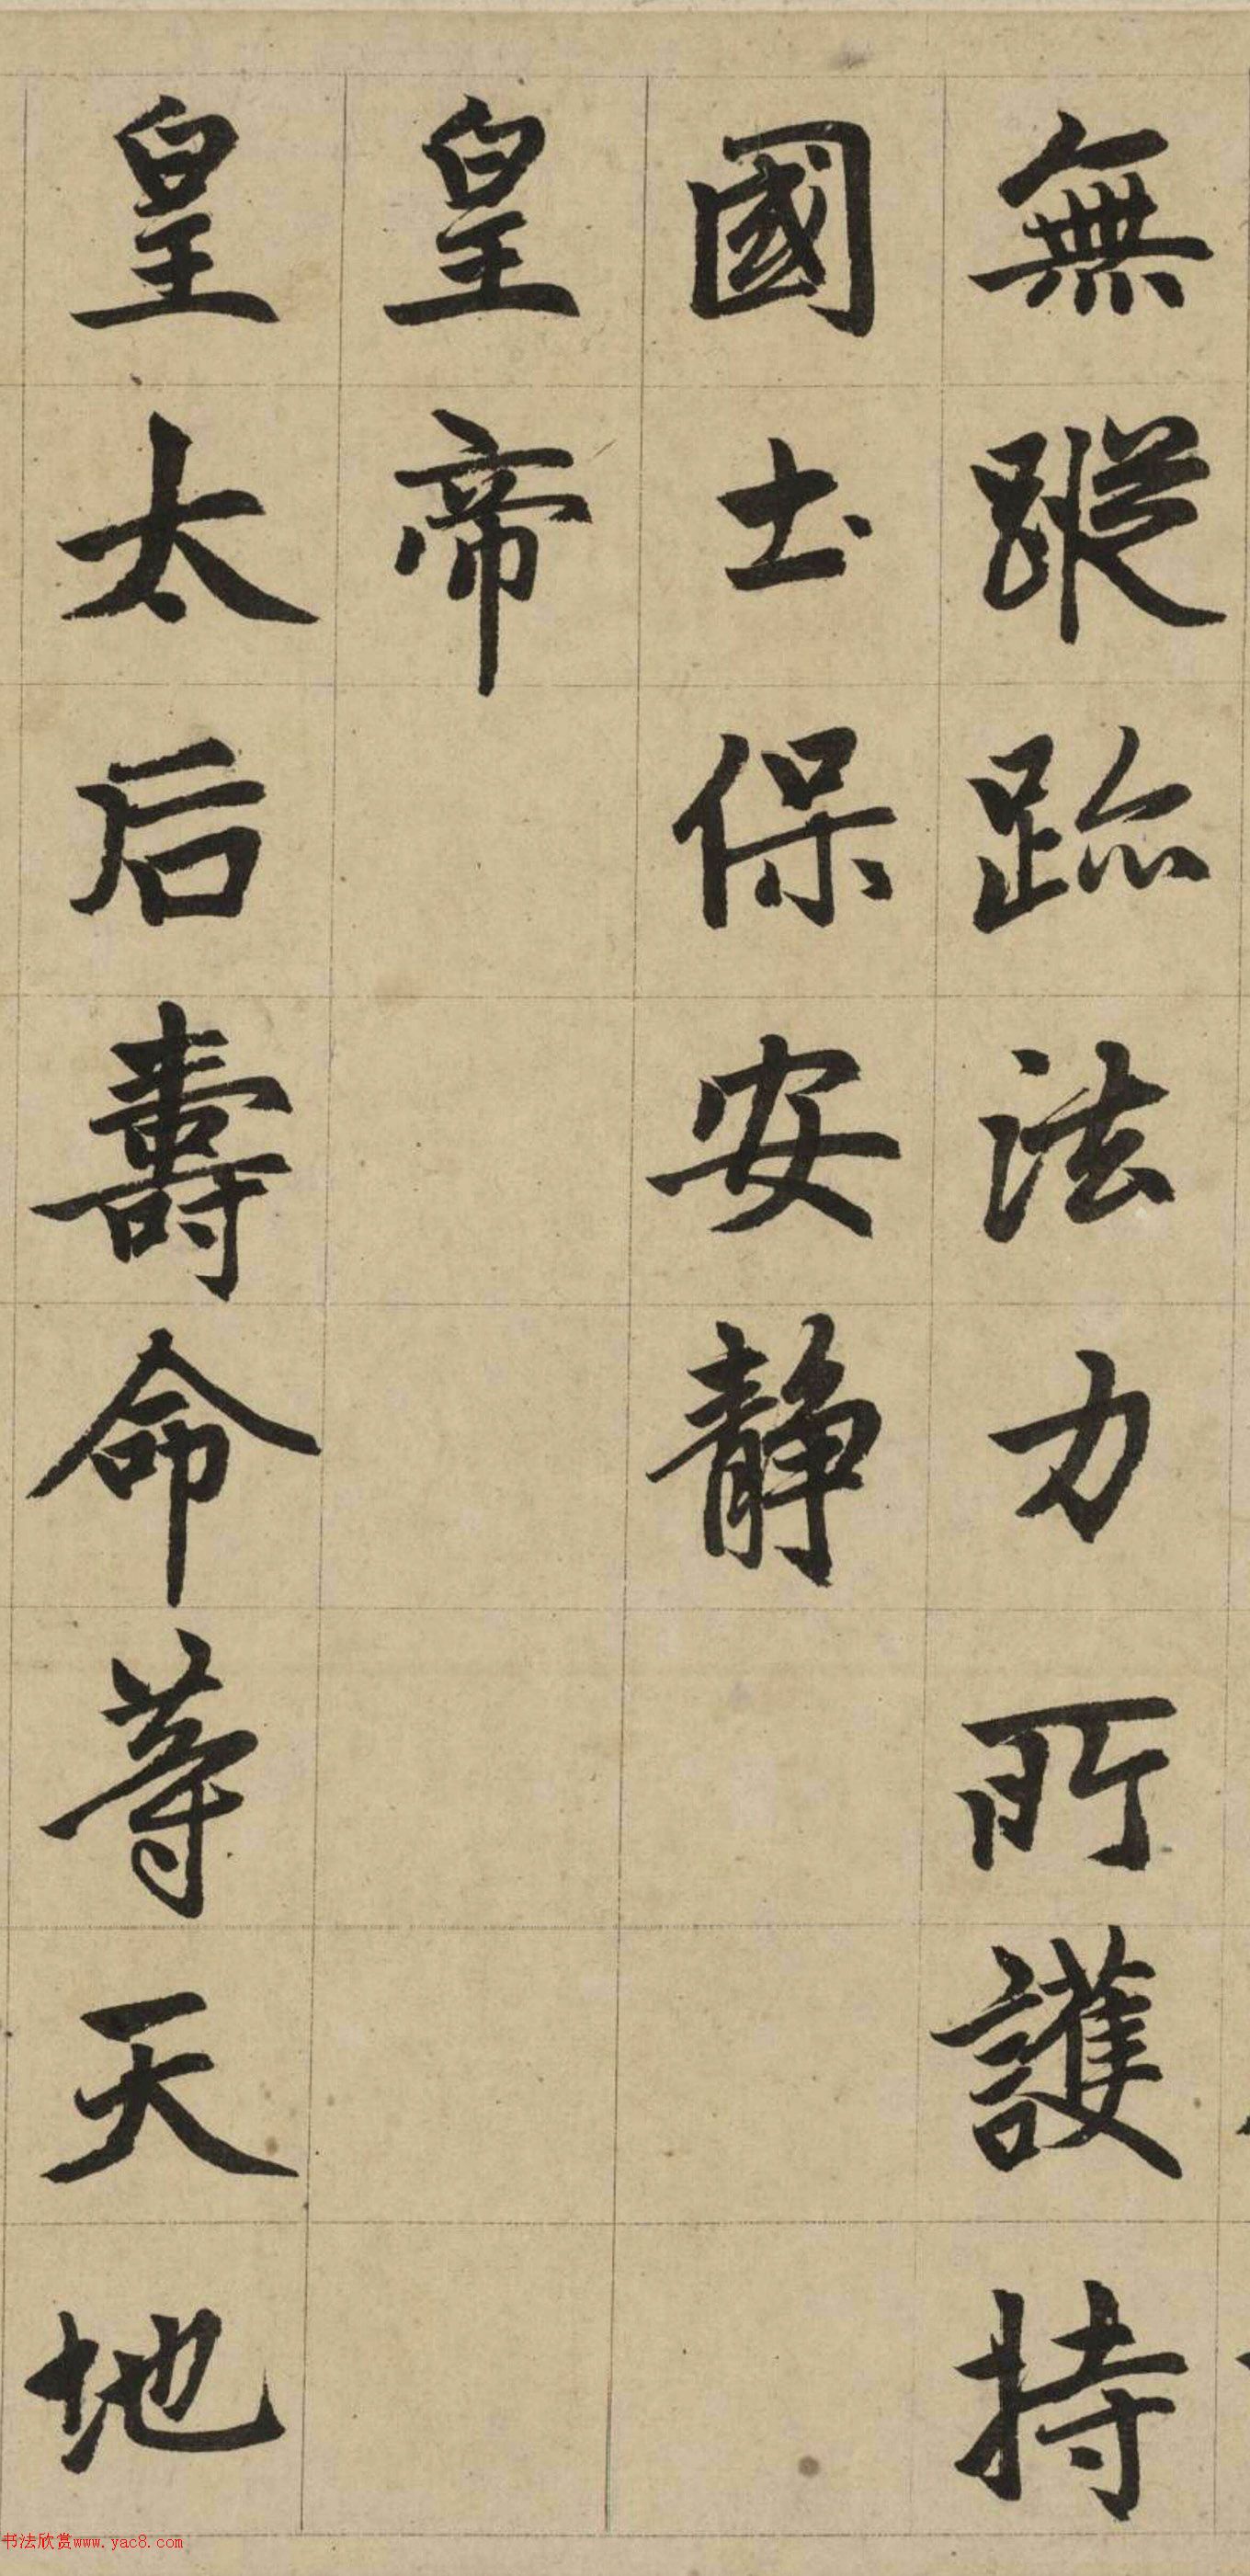 無蹤跡法力所護持
國土保安靜
皇帝
皇太后壽命等天地
书法欣赏www.yac8.com